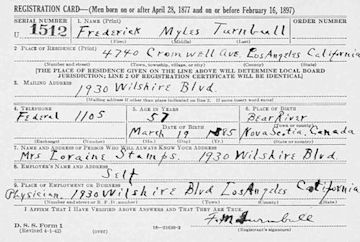 REGISTRATION CARD—(Men born on or after April 28, 1877 and on or before February 16, 1897)
SERIAL NUMBER 1. NAME (Print) ORDER NUMBER
U 1512 Frederick Myles Turnbull
(First) (Middle) (Last)
2. PLACE OF RESIDENCE (Print)
4740 Cromwell Ave. Los Angeles California
(Number and street) (Town, township, village, or city) (County) (State)
[THE PLACE OF RESIDENCE GIVEN ON THE LINE ABOVE WILL DETERMINE LOCAL BOARD
JURISDICTION; LINE 2 OF REGISTRATION CERTIFICATE WILL BE IDENTICAL]
3. MAILING ADDRESS
1930 Wilshire Blvd.
[Mailing address if other than place indicated on line 2. If same insert word same]
4. TELEPHONE 5. AGE IN YEARS 6. PLACE OF BIRTH
Federal 1105 57 Bear River
DATE OF BIRTH (Town or county)
March 19 1885 Nova Scotia, Canada
(Exchange) (Number) (Mo.) (Day) (Yr.) (State or country)
7. NAME AND ADDRESS OF PERSON WHO WILL ALWAYS KNOW YOUR ADDRESS
Mrs Loraine Stamps. 1930 Wilshire Blvd.
8. EMPLOYER'S NAME AND ADDRESS
Self
9. PLACE OF EMPLOYMENT OR BUSINESS
Physician. 1930 Wilshire Blvd Los Angeles California
(Number and street or R. F. D. number) (Town) (County) (State)
I AFFIRM THAT I HAVE VERIFIED ABOVE ANSWERS AND THAT THEY ARE TRUE.
F. M. Turnbull
D. S. S. Form 1
(Revised 4-1-42) (Registrant's signature)